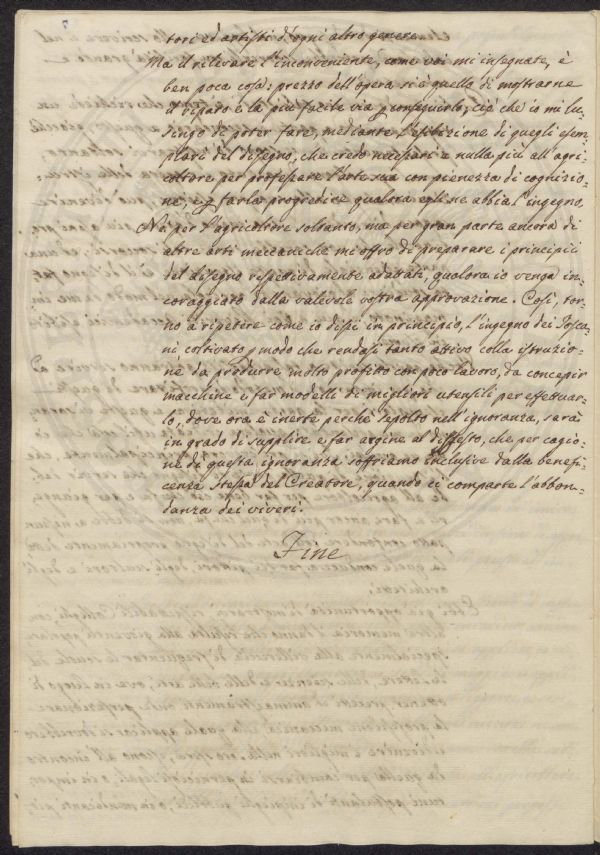 tori ed artisti d'ogni altro genere.
Ma il rilevare l'inconveniente, come voi mi insegnate, è
ben poca cosa: prezzo dell'opera si è quello di mostrarne
il riparo e la più facile via p conseguirlo; ciò che io mi lu-
singo di poter fare, mediante l'esibizione di quegli esem-
plari del disegno, che credo necessari e nulla più all'agri-
coltore per professare l'arte sua con pienezza di cognizio-
ne, e p farla progredire qualora egli ne abbia l'ingegno.
Nè per l'agricoltore soltanto, ma per gran parte ancora di
altre arti meccaniche mi offro di preparare i principii
del disegno rispettivamente adattati, qualora io venga in-
coraggiato dalla valevole vostra approvazione. Così, tor-
no a ripetere come io dissi in principio, l'ingegno dei Tosca-
ni coltivato p modo che rendasi tanto attivo colla istruzio-
ne da produrre molto profitto con poco lavoro, da concepir
macchine e far modelli di migliori utensili per effettuar-
lo, dove ora è inerte perchè sepolto nell'ignoranza, sarà
in grado di supplire e far argine al difetto, che per cagio-
ne di questa ignoranza soffriamo inclusive dalla benefi-
cenza stessa del Creatore, quando ci comparte l'abbon-
danza dei viveri.
Fine